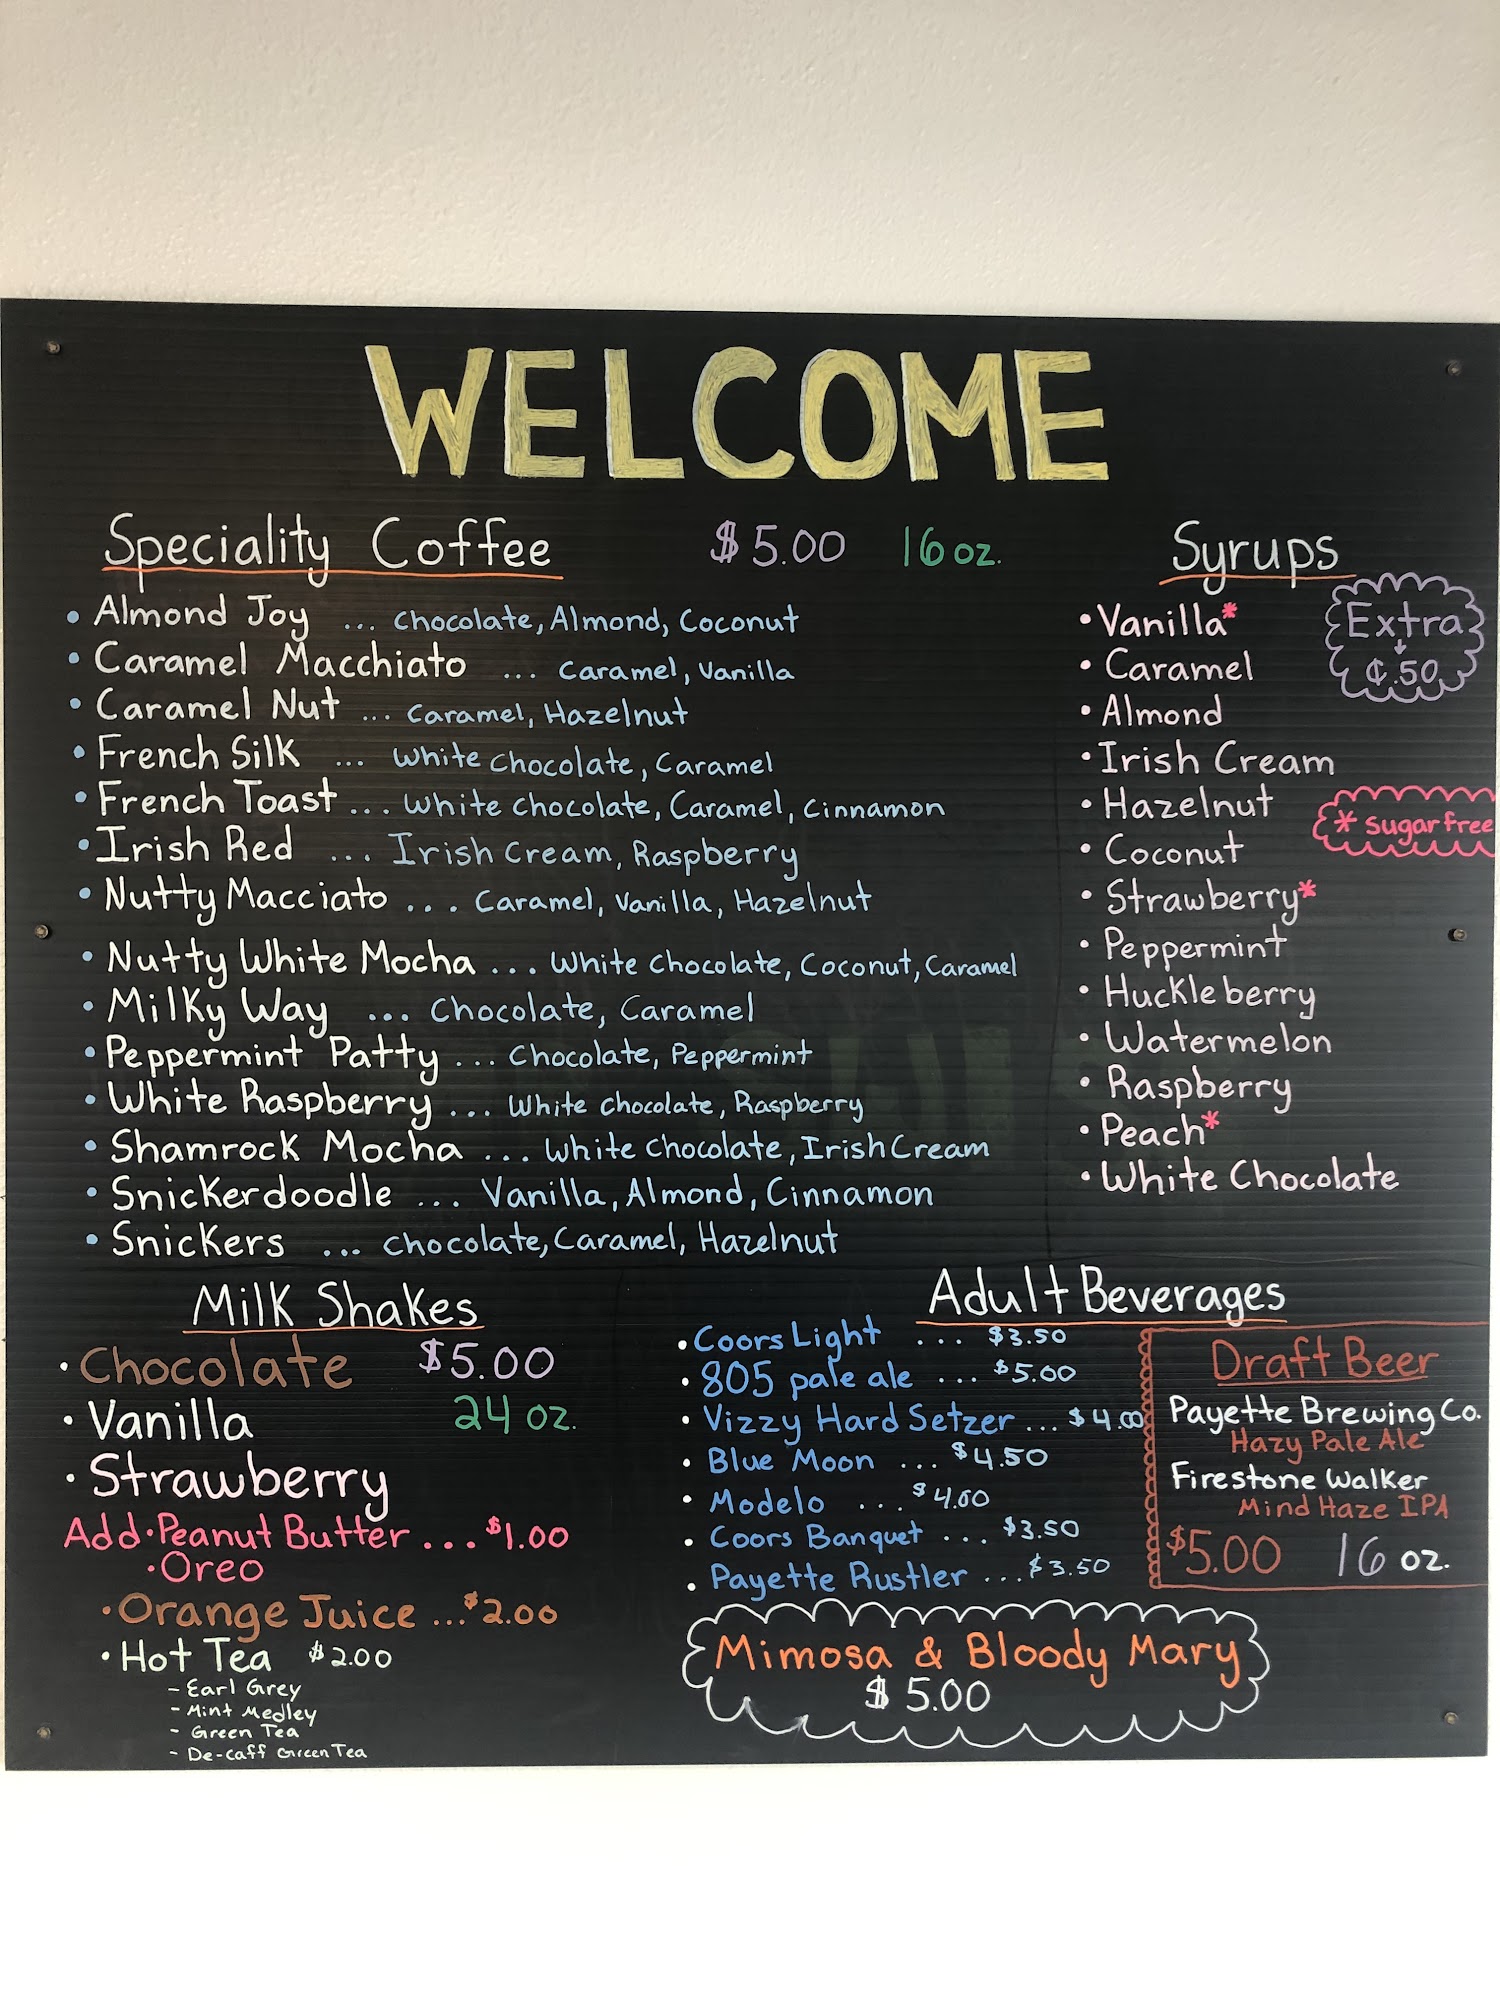 WELCOME
Speciality Coffee $5.00 16 oz.
• Almond Joy ... Chocolate, Almond, Coconut
• Caramel Macchiato ... Caramel, Vanilla
• Caramel Nut ... Caramel, Hazelnut
• French Silk ... White Chocolate, Caramel
• French Toast ... White Chocolate, Caramel, Cinnamon
• Irish Red ... Irish Cream, Raspberry
• Nutty Macciato ... Caramel, Vanilla, Hazelnut
• Nutty White Mocha ... White Chocolate, Coconut, Caramel
• Milky Way ... Chocolate, Caramel
• Peppermint Patty ... Chocolate, Peppermint
• White Raspberry ... White Chocolate, Raspberry
• Shamrock Mocha ... White Chocolate, Irish Cream
• Snickerdoodle ... Vanilla, Almond, Cinnamon
• Snickers ... Chocolate, Caramel, Hazelnut
Syrups
Extra
¢.50
• Vanilla*
• Caramel
• Almond
• Irish Cream
• Hazelnut
* Sugar free
• Coconut
• Strawberry*
• Peppermint
• Huckleberry
• Watermelon
• Raspberry
• Peach*
• White Chocolate
Milk Shakes
• Chocolate $5.00
• Vanilla 24 oz.
• Strawberry
Add • Peanut Butter ... $1.00
• Oreo
• Orange Juice ... $2.00
• Hot Tea $2.00
- Earl Grey
- Mint Medley
- Green Tea
- De-caff Green Tea
Adult Beverages
• Coors Light ... $3.50
• 805 pale ale ... $5.00
• Vizzy Hard Setzer ... $4.00
• Blue Moon ... $4.50
• Modelo ... $4.00
• Coors Banquet ... $3.50
• Payette Rustler ... $3.50
Draft Beer
Payette Brewing Co.
Hazy Pale Ale
Firestone Walker
Mind Haze IPA
$5.00 16 oz.
Mimosa & Bloody Mary
$5.00